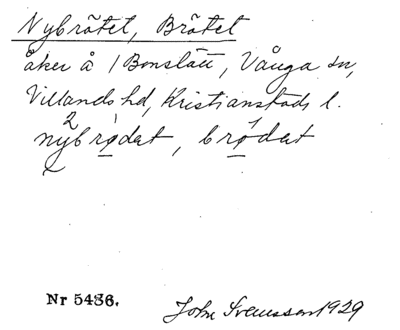 Nybrötet, Brötet
åker å 1 Bonslätt, Vånga sn,
Villands hd, Kristianstads l.
nybrødet, brødet
Nr 5436. John Svensson 1929